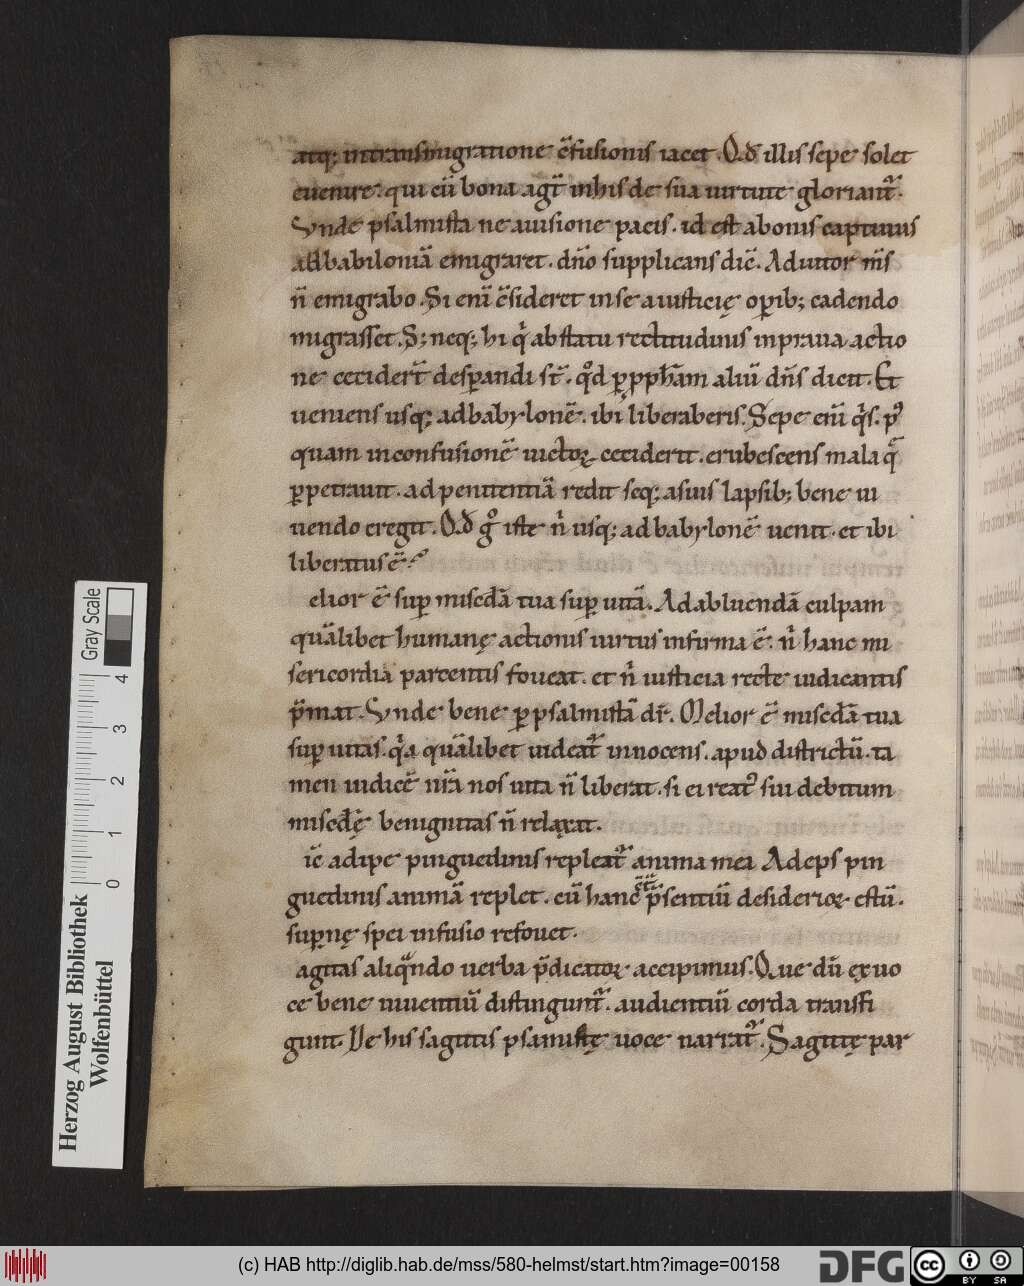 atq; intransmigratione c̄fusionis iacet. Qđ illis sepe solet
euenire. qui cū bona agt̄ inhis de sua uirtute gloriant᷑.
Vnde psalmista ne auisione pacis. id est abonis captiuus
adbabiloniā emigraret. dn̄o supplicans dic̄. Adiutor m̄s
n̄ emigrabo. Si eni c̄sideret inse aiusticię oꝑib; cadendo
migrasset. S; neq; hi q̇ abstatu rectitudinis inpraua actio
ne ceciderт̄ desꝑandi st̄. qͦd ꝑpph̄am aliū dn̄s dicit. Et
ueniens usq; adbabylonē. ibi liberaberis. Sepe enī q̇s. pꝰ
quam inconfusionē uictoꝝ ceciderit. erubescens mala q̄
ꝑpetrauit. ad penitentiā redit seq; asuis lapsib; bene ui
uendo eregit. Qđ gͦ iste n̄ usq; ad babylonē uenit. et ibi
liberatus ē?
elior ē suꝑ misedā tua suꝑ uitā. Adabluendā culpam
quālibet humanę actionis uirtus infirma ē. n̄ hanc mi
sericordia parcentis foueat. et n̄ iusticia recte iudicantis
p̄mat. Vnde bene ꝑ psalmistā dr̄. Melior ē misedā tua
suꝑ uitas. q̇a quālibet uideat᷑ innocens. apud districtū. ta
men iudicē nr̄a nos uita n̄ liberat. si ei reatꝰ sui debitum
misedę benignitas n̄ relaxat.
ic̄ adipe pinguedinis repleat᷑ anima mea Adeps pin
guedinis animā replet. cū hanc p̄sentiū desiderioꝝ estū.
suꝑnę spei infusio refouet.
agitas aliqͣndo uerba p̄dicatoꝝ accipimus. Que dū exuo
ce bene uiuentiū distingunt᷑. audientiū corda transfi
gunt. De his sagittis psamistę uoce narrat᷑. Sagittę par
Gray Scale
4
3
2
1
0
Herzog August Bibliothek
Wolfenbüttel
(c) HAB http://diglib.hab.de/mss/580-helmst/start.htm?image=00158
DFG
cc
BY SA